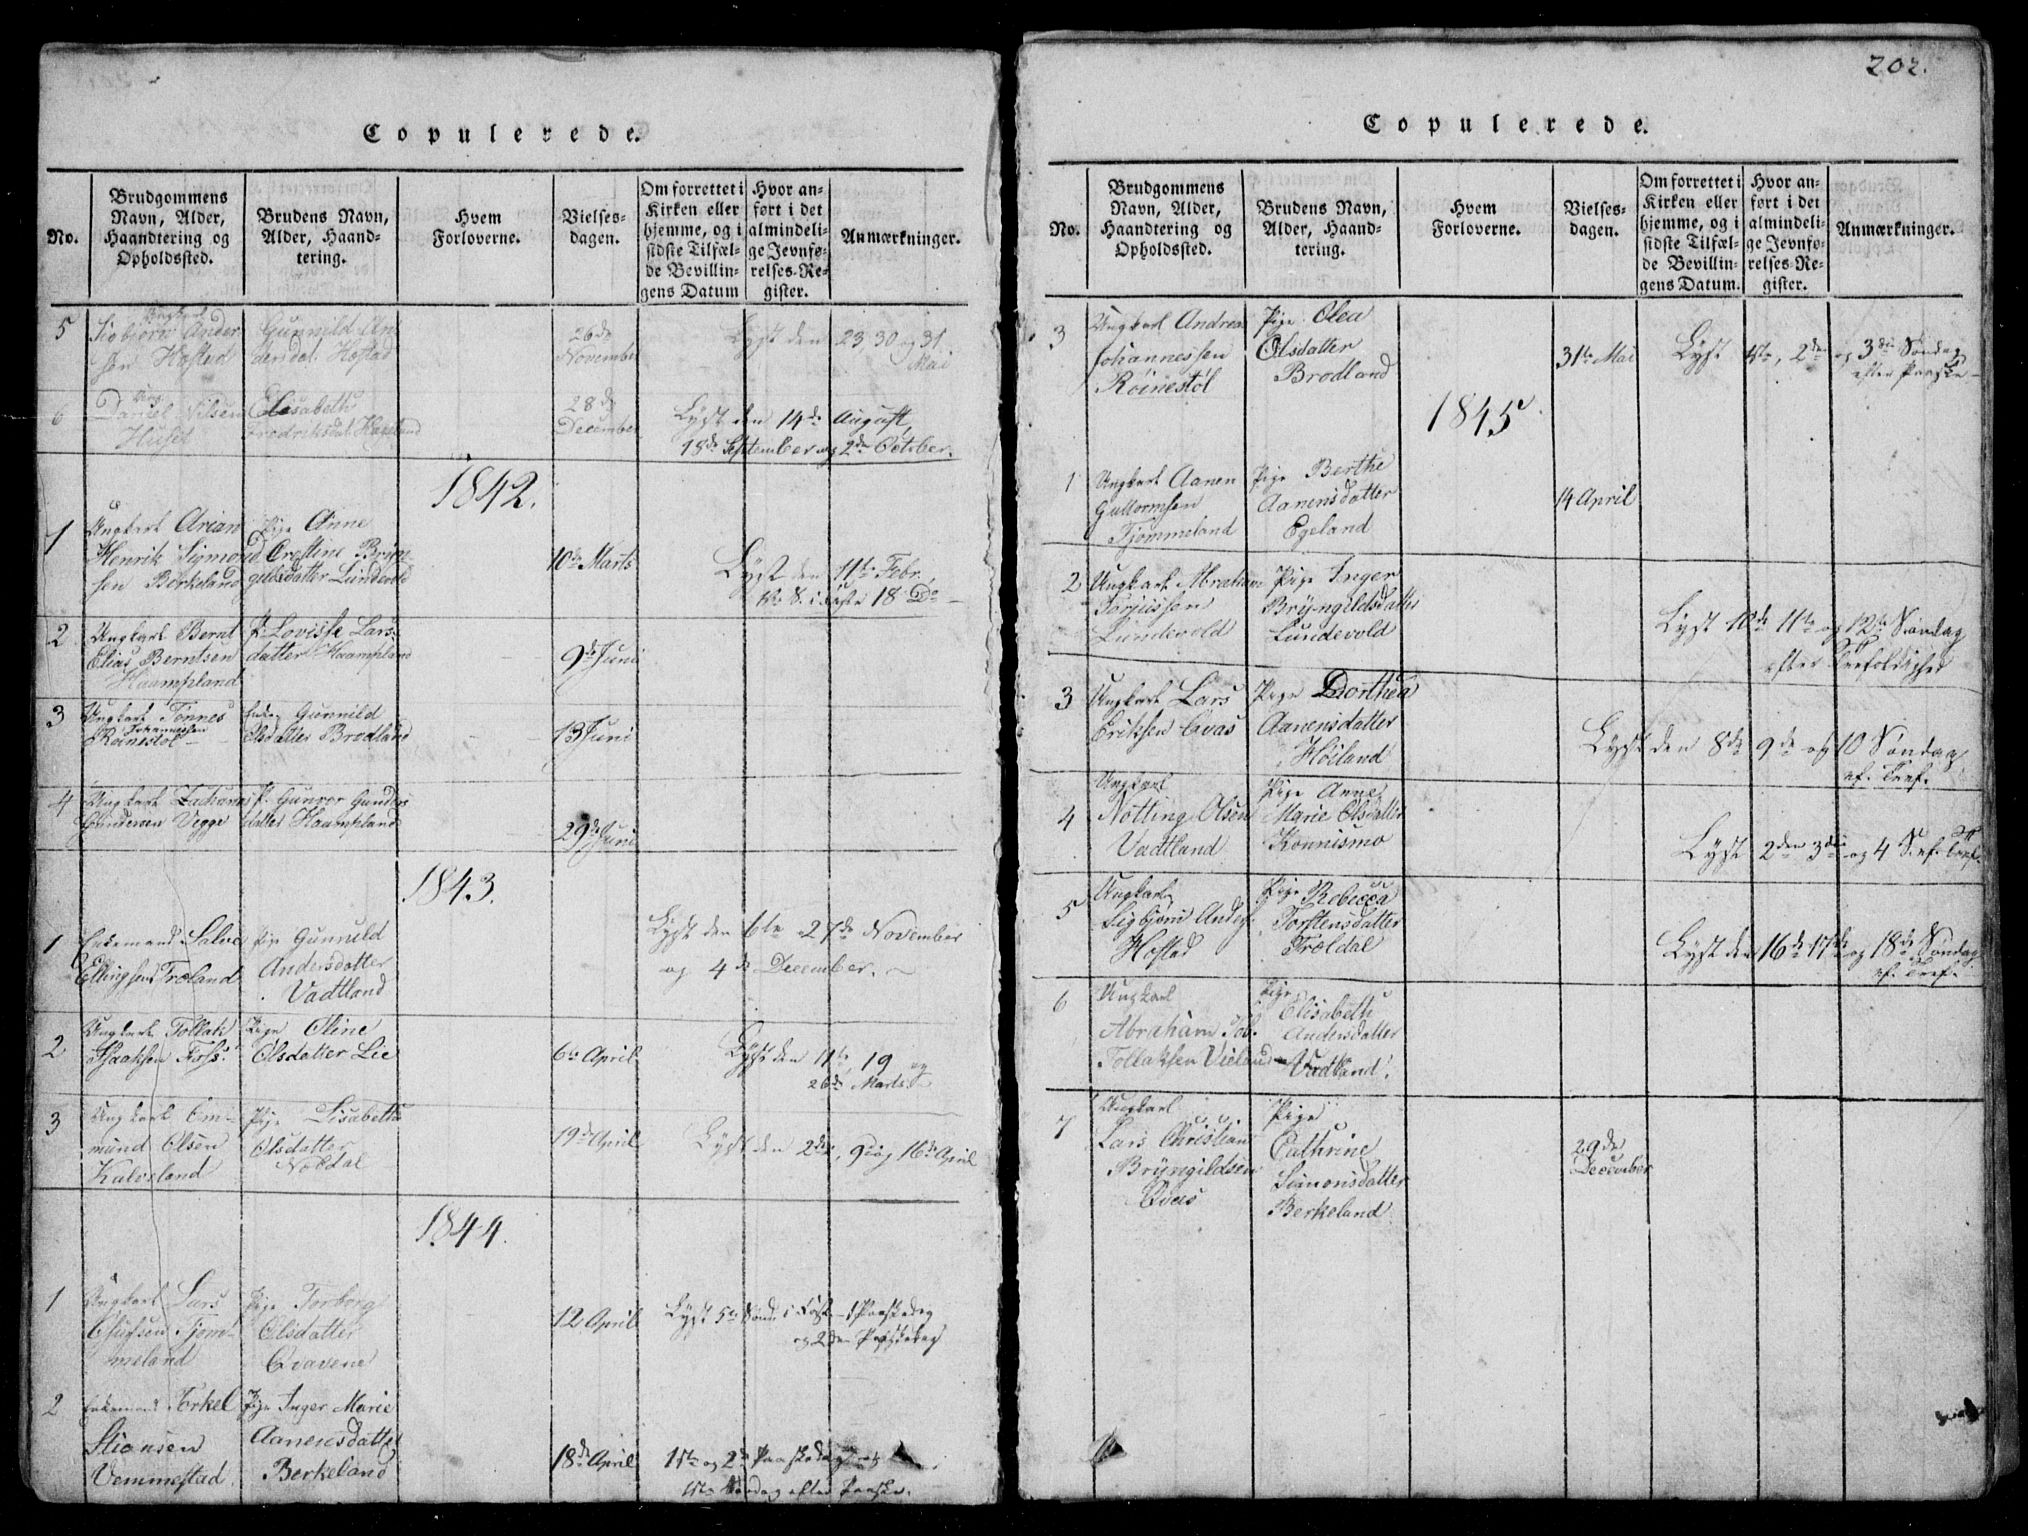 Copulerede.
No.
Brudgommens Navn, Alder, Haandtering og Opholdssted.
Brudens Navn, Alder, Haandtering.
Hvem Forloverne.
Vielsesdagen.
Om forrettet i Kirken eller hjemme, og i sidste Tilfælde Bevillingens Datum
Hvor anført i det almindelige Jevnførelses-Register.
Anmærkninger.
5
Ungkarl
Sigbjørn Ander
sen Hostad
Gunnild An
dersdat. Hostad
26de
November
Lyst den 23, 30 og 31
Mai
6
Ung.
Daniel Nilsen
Huset
Elisabeth
Fredriksdat.
28de
December
Lyst den 14de August,
18de September og 2den October.
1842.
1
Ungkarl Arian
Henrik Sigmond
sen Berkeland
Pige Anne
Crestine Bryn
gelsdatter Lundevold
10de Marts
Lyst den 11te Febr.
18 Do
2
Ungkarl Bernt
Elias Berntsen
Haampland
P. Lovisse Lars
datter Haampland
9de Juni
3
Ungkarl Tønnes
Johannessen
Røinestøl
Enke Gunnild
Olsdatter Brodland
13 Juni
4
Ungkarl Zacharias
Gundersen Vegge
P. Gunvor Gunders
datter Haampland
29de Juni
1843.
1
Enkemand Salve
Ellingsen Træland
Pige Gunnild
Andersdatter
Vadtland
Lyst den 6te 27de November
og 4de December.
2
Ungkarl Tollak
Isaaksen Foss.
Pige Oline
Olsdatter Lie
6te April
Lyst den 11te, 19 og
26de Marts
3
Ungkarl Em-
mund Olsen
Kalveland
Pige Lisabeth
Olsdatter
Noddal
19de April
Lyst den 2den, 9de og 16de April
1844.
1
Ungkarl Lars
Tjom-
meland
Pige Torborg
Olsdatter
Qvavene
12 April
Lyst 5te Sønd. i Fast. 1 Paaskedag
og 2den Paaskedag
2
Enkemand Torkel
Stiansen
Vemmestad.
Pige Inger Marie
Aanensdatter
Berkeland
18de April
1ste og 2de Paaskedag og
1ste Søndag efter Paaske.
202.
Copulerede.
No.
Brudgommens Navn, Alder, Haandtering og Opholdssted.
Brudens Navn, Alder, Haandtering.
Hvem Forloverne.
Vielsesdagen.
Om forrettet i Kirken eller hjemme, og i sidste Tilfælde Bevillingens Datum.
Hvor anført i det almindelige Jevnførelses-Register.
Anmærkninger.
3
Ungkarl Andreas
Johannessen
Røinestøl
Pige Olea
Olsdatter
Brodland
31te Mai
Lyst 1ste, 2den og 3die Søndag
efter Paaske
1845.
1
Ungkarl Aanen
Guttormsen
Tjommeland
Pige Berthe
Aanensdatter
Egeland
14 April
2
Ungkarl Abraham
Torjussen
Lundevold
Pige Inger
Bryngildsdatter
Lundevold
Lyst 10de 11te og 12te Søndag
efter Trefoldighed
3
Ungkarl Lars
Eriksen Qvas
Pige Dorthea
Aanensdatter
Høiland
Lyst den 8de 9de og 10 Søndag
ef. Tref.
4
Ungkarl
Notting Olsen
Vadtland
Pige Anne
Marie Olsdatter
Konnismo
Lyst 2den 3die og 4 S. ef. Tref.
5
Ungkarl
Sigbjørn Anders.
Hostad
Pige Rebecca
Torstensdatter
Trældal
Lyst den 16de 17de og 18de Søndag
ef. Tref.
6
Ungkarl
Abraham Tob.
Tollaksen Vieland
Pige
Elisabeth
Andersdatter
Vadtland.
7
Ungkarl
Lars Christian
Bryngildsen
Qvas
Pige
Cathrine
Simonsdatter
Berkeland
29de
December